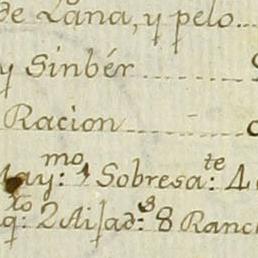 de Lana, y pelo...
y Sinbér
Racion
May: mo 1 Sobresa: te 4
q: to 2 Aijad: s 8 Ranc